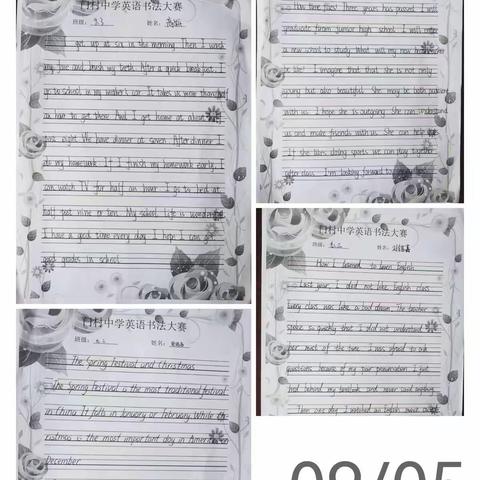 中学英语书法大赛
班级：
姓名：
I get up at six in the morning. Then I wash
my face and brush my teeth. After a quick breakfast, I
go to school in my mother's car. It takes us more than half
an hour to get there. And I get home at about
past eight. We have dinner at seven. After dinner I
do my homework. If I finish my homework early, I
can watch TV for half an hour. I go to bed at
half past nine or ten. My school life is wonderful
I have a good time every day. I hope I can get
good grades in school.
How time flies! Three years has passed. I will
graduate from junior high school. I will enter
a new school to study. What will my new
be like? I imagine that that she is not only
young but also beautiful. She may be both
with us. I hope she is outgoing. She can understand
us and make friends with us. She can help
If she likes doing sports, we can play together
after class. I'm looking forward to
中学英语书法大赛
班级：
姓名：
How I learned to learn English
Last year, I did not like English class
Every class was like a bad dream. The teacher
spoke so quickly that I did not understand
her most of the time. I was afraid to ask
questions because of my poor pronunciation. I just
hid behind my textbook and never said anything.
Then one day I watched an English movie
村中学英语书法大赛
班级：
姓名：
The Spring Festival and Christmas
The Spring Festival is the most traditional festival
in China. It falls in January or February. While Ch-
ristmas is the most important day in America
December